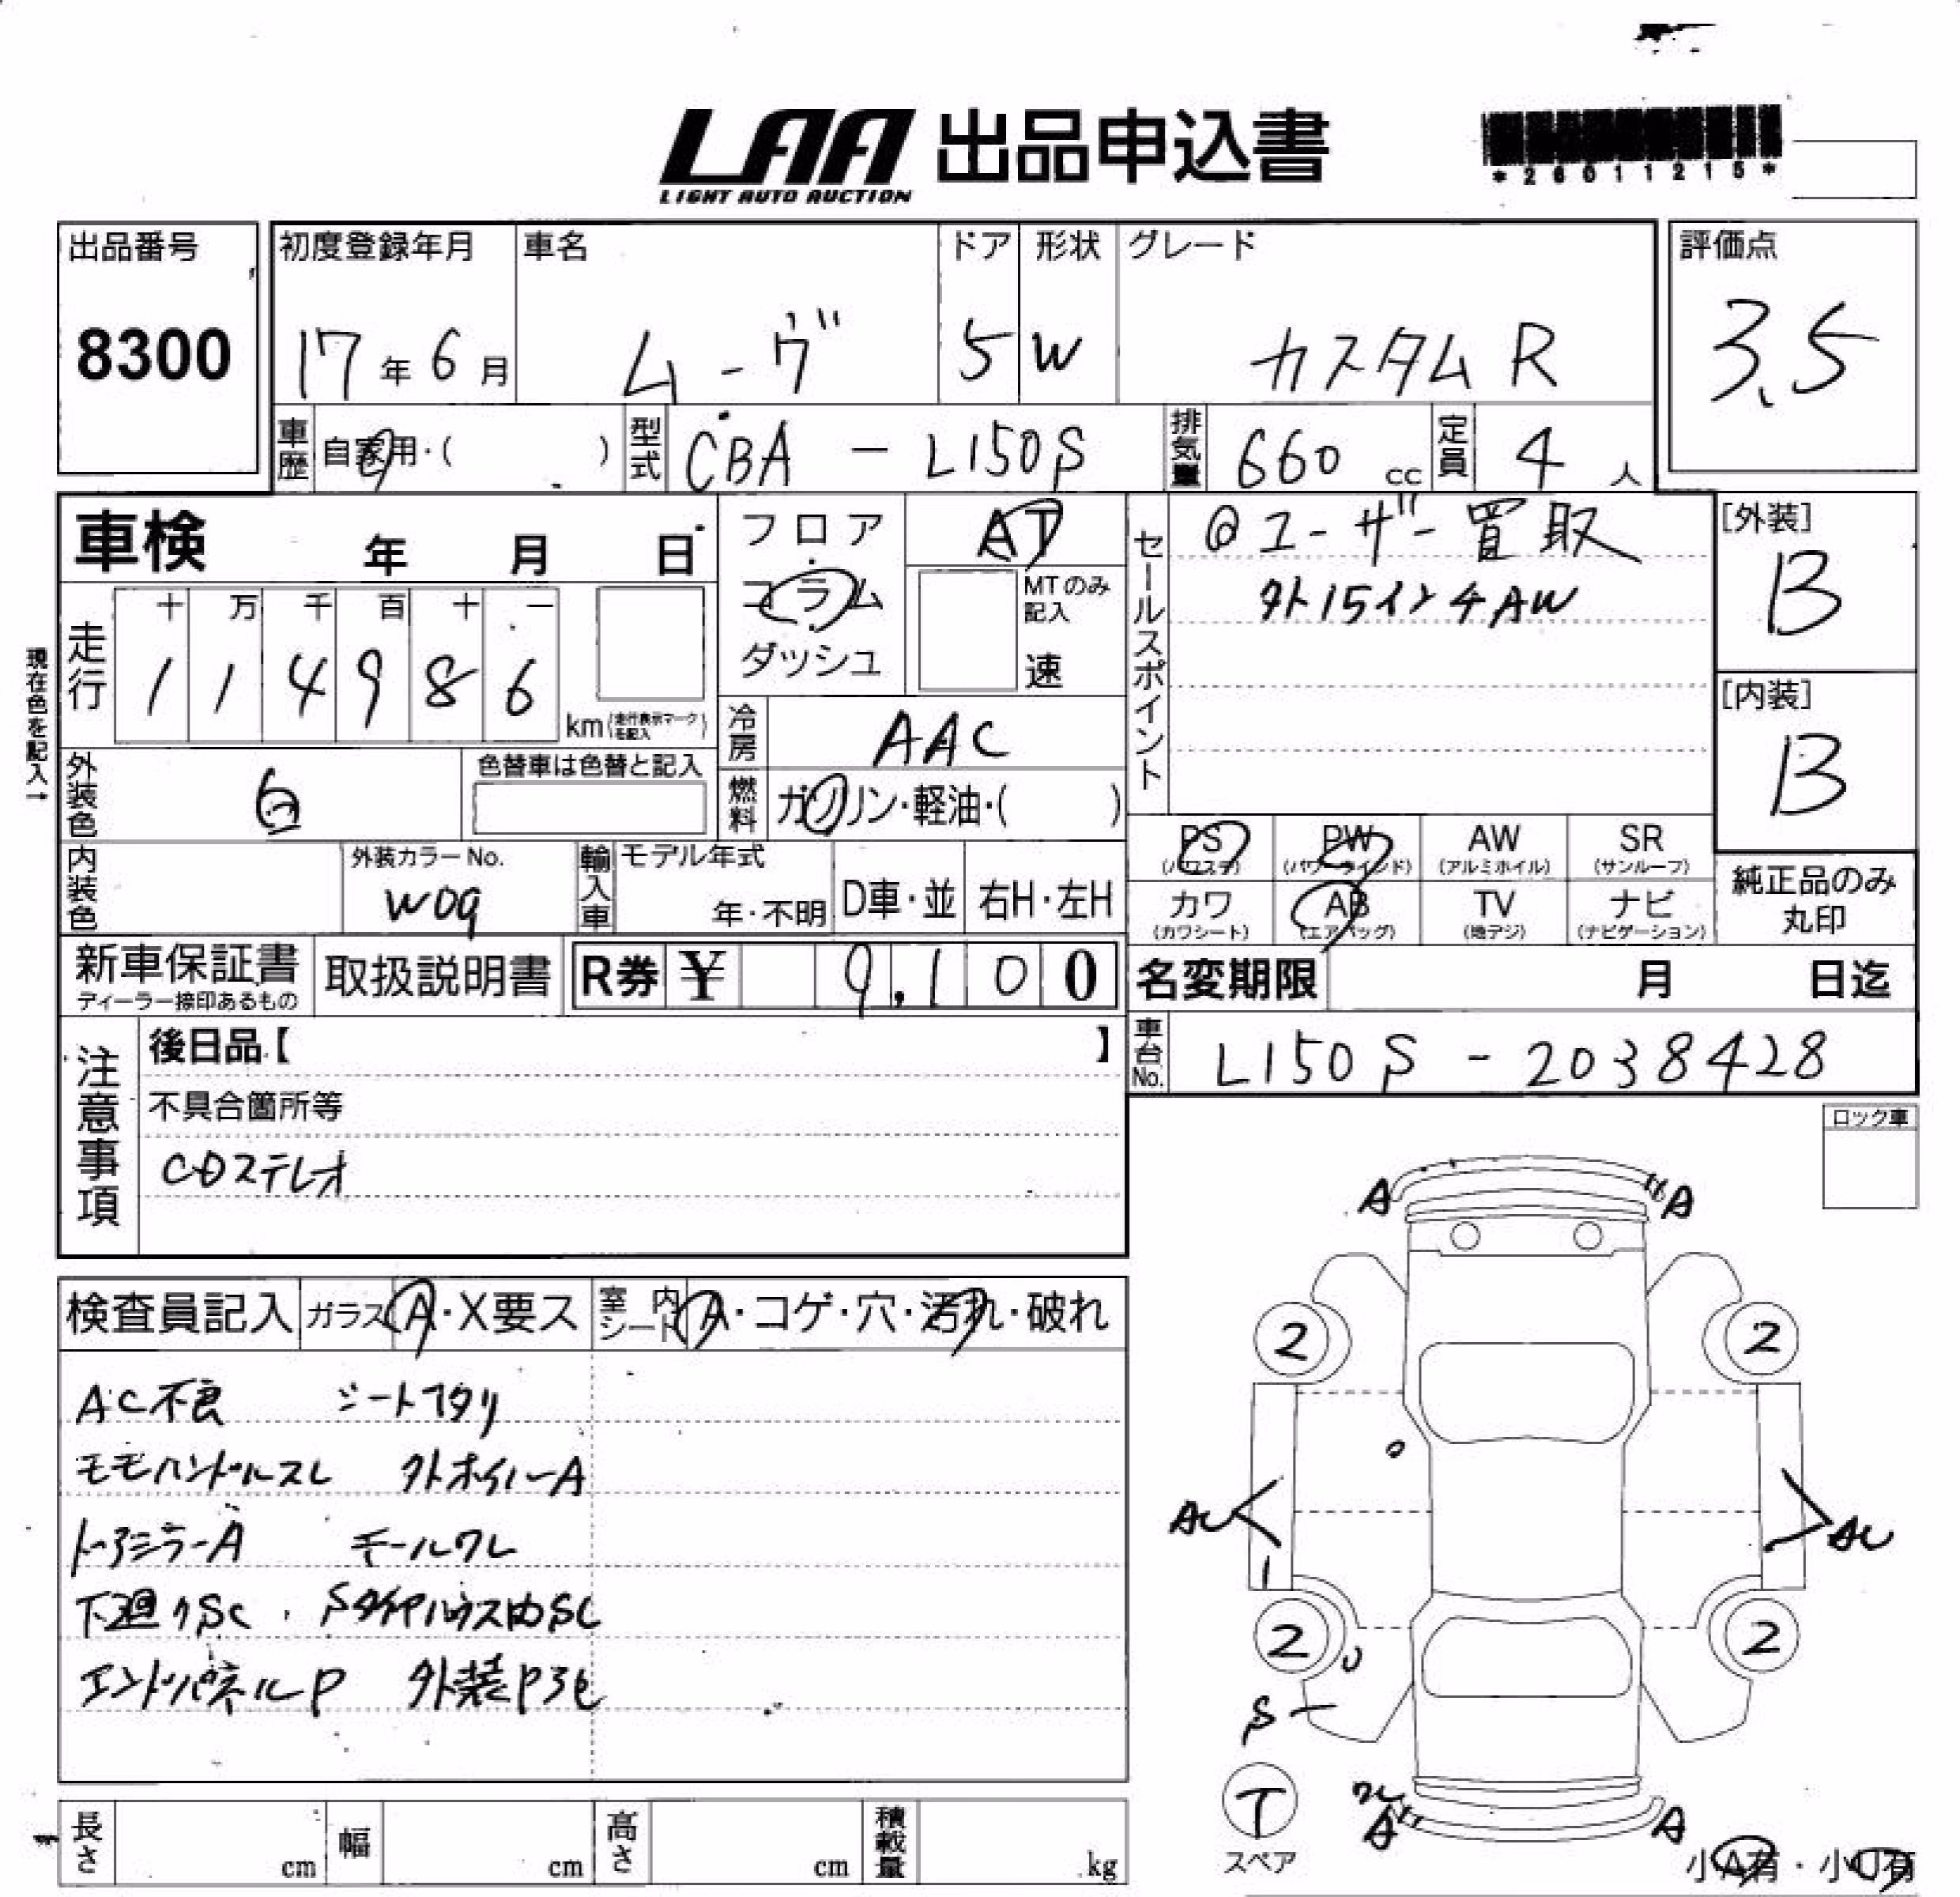 LAA 出品申込書
LIGHT AUTO AUCTION
*26011215*
出品番号 初度登録年月 車名 ドア 形状 グレード 評価点
8300 17年6月 ムーヴ 5 W カスタムR 3.5
車歴 自家用・( ) 型式 CBA - L150S 排気量 660 cc 定員 4 人
車検 年 月 日
フロア・コラム・ダッシュ
AT
MTのみ記入
速
セールスポイント
@ユーザー買取
外15インチAW
[外装]
B
[内装]
B
現在色を記入→
走行 十 万 千 百 十 一
1 1 4 9 8 6 km(走行表示マークを記入)
冷房 AAC
外装色 白 色替車は色替と記入
燃料 ガソリン・軽油・( )
PS (パワステ) PW (パワーウインド) AW (アルミホイル) SR (サンルーフ)
カワ (カワシート) AB (エアバッグ) TV (地デジ) ナビ (ナビゲーション)
純正品のみ丸印
内装色 外装カラーNo. W09 輸入車 モデル年式 年・不明 D車・並 右H・左H
新車保証書 ディーラー捺印あるもの 取扱説明書 R券 ¥ 9,100
名変期限 月 日迄
車台No. L150S - 2038428
注意事項
後日品【 】
不具合箇所等
CDステレオ
ロック車
検査員記入 ガラス A・X要ス 室内シート A・コゲ・穴・汚れ・破れ
AC不良 シートヘタリ
モモハンドルスレ 外ホイルA
ドアミラーA モールワレ
下廻りSC Sタイヤハウス内SC
エンドパネルP 外装P3モ
A A
2 2
AU AU
2 2
U
S
T
スペア
ワレ
A A
小A有・小U有
長さ cm 幅 cm 高さ cm 積載量 kg